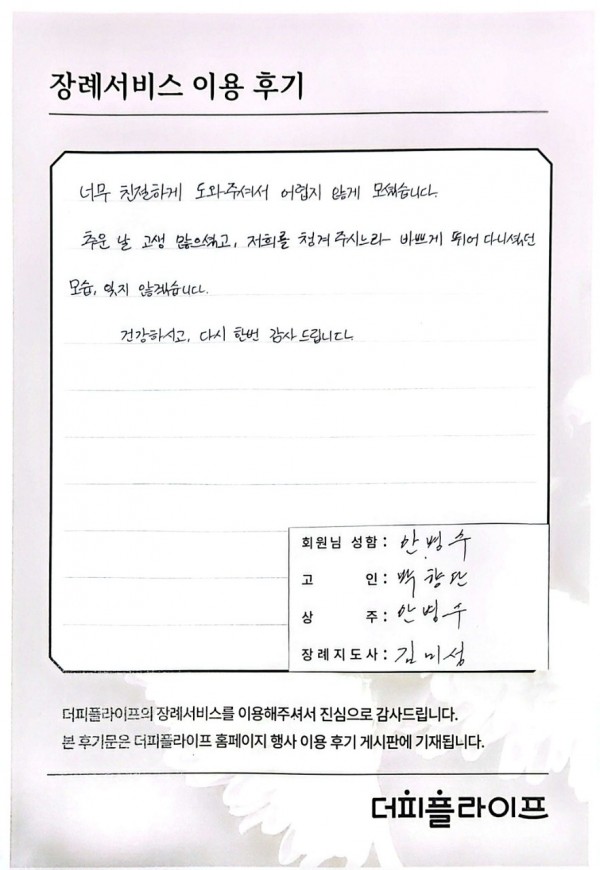 장례서비스 이용 후기
너무 친절하게 도와주셔서 어렵지 않게 모셨습니다.
추운 날 고생 많으셨고, 저희를 챙겨 주시느라 바쁘게 뛰어 다니셨던
모습, 잊지 않겠습니다.
건강하시고, 다시 한번 감사드립니다.
회원님 성함: 안병수
고 인: 백향단
상 주: 안병수
장례지도사: 김미성
더피플라이프의 장례서비스를 이용해주셔서 진심으로 감사드립니다.
본 후기문은 더피플라이프 홈페이지 행사 이용 후기 게시판에 기재됩니다.
더피플라이프